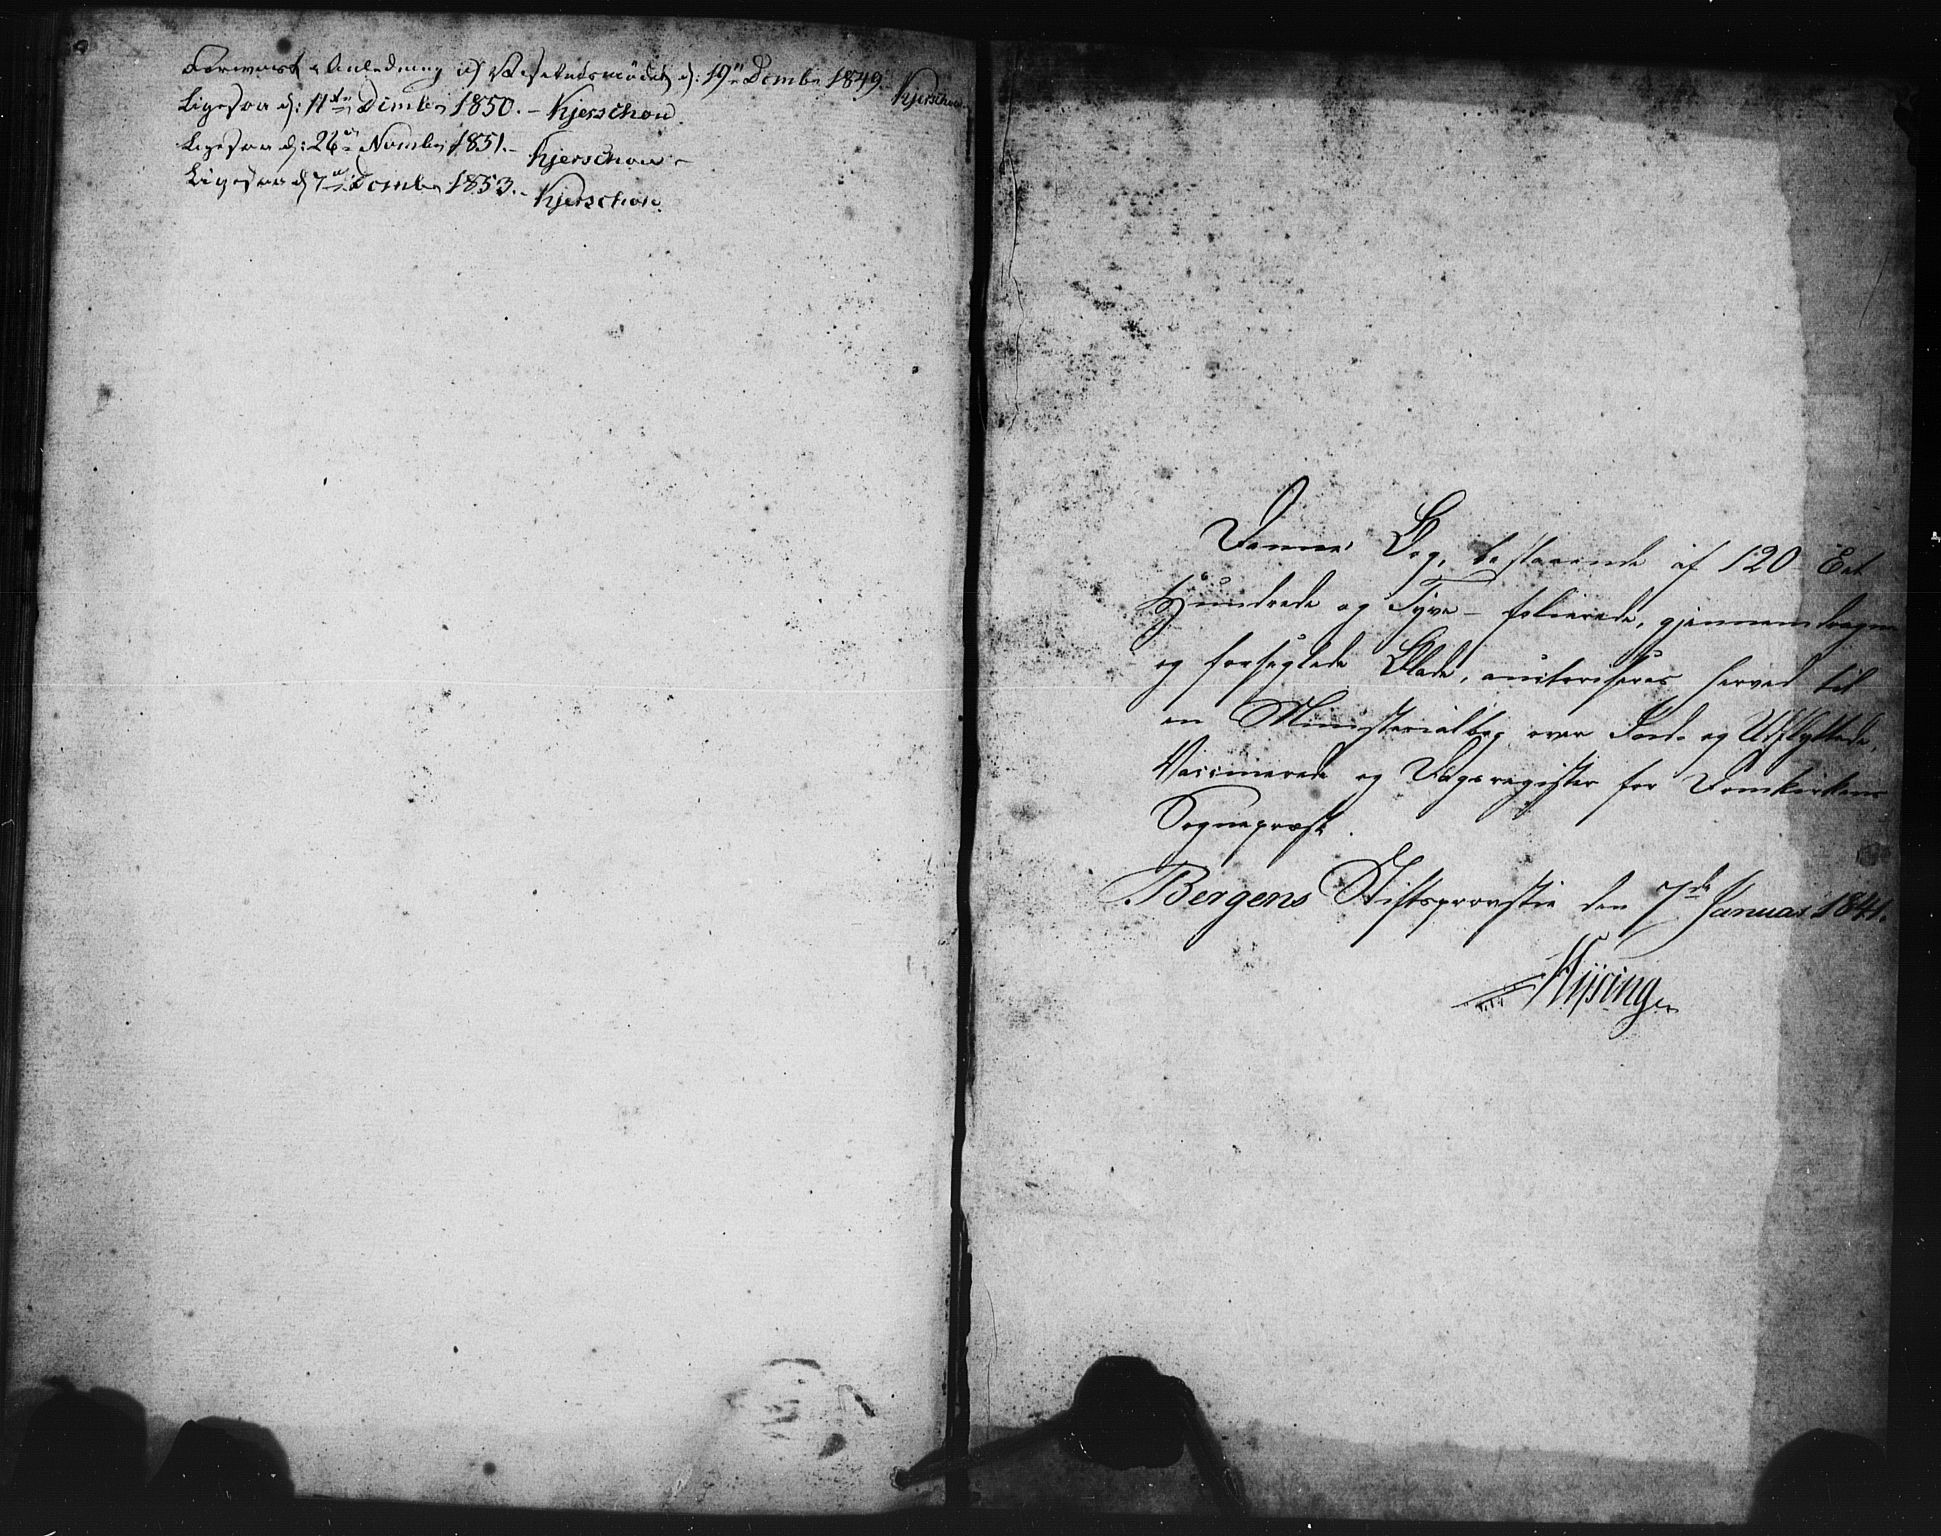 Foreviist i Anledning af Visitatsmødet d: 19de Decmbr 1849. Kjerschow
Ligesaa d: 11te Decmbr 1850. - Kjerschow
Ligesaa d: 26de Novmbr 1851. - Kjerschow -
Ligesaa d 7de Decmbr 1853. - Kjerschow
Denne Bog, bestaaende af 120 Eet
Hundrede og Tyve - folierede, gjennemdragne
og forseglede Blade, autoriseres herved til
en Ministerialbog over Ind- og Udflyttede,
Vaccinerede og Dagsregister for Domkirkens
Sognepræst.
Bergens Stiftsprovstie den 7de Januar 1841.